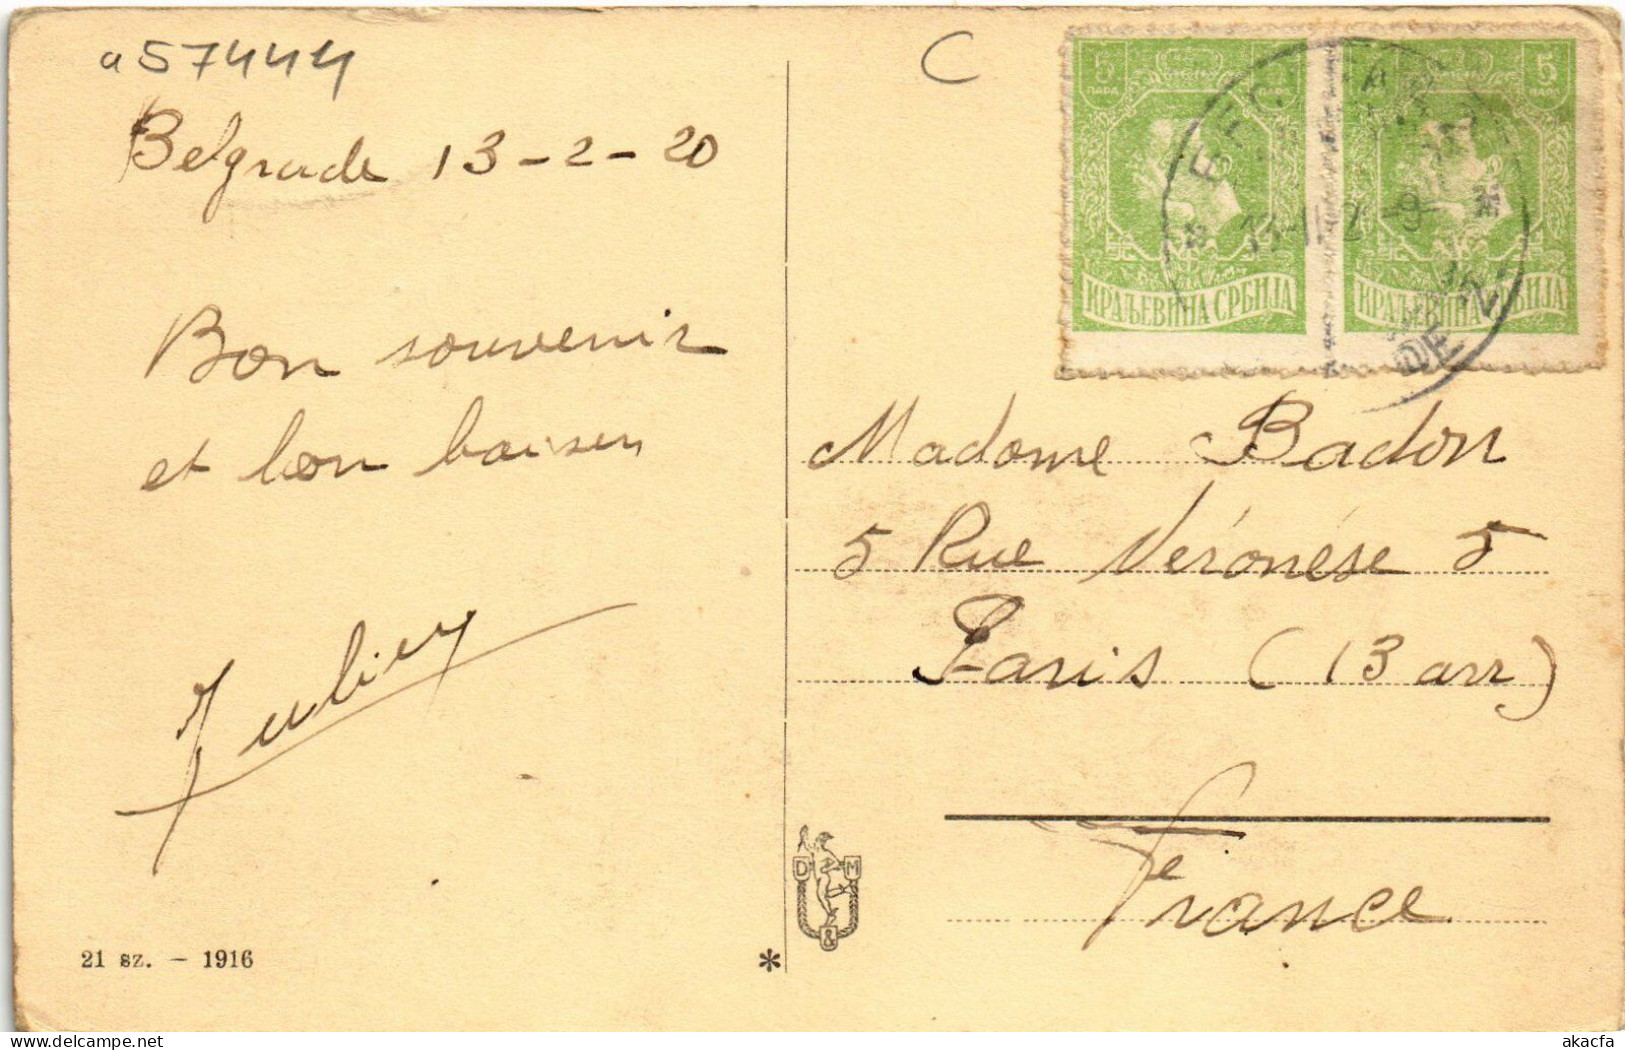 a 57444
C
Belgrade 13-2-20
Bon souvenir
et bon baiser
5 ПАРА
5 ПАРА
КРАЉЕВИНА СРБИЈА
КРАЉЕВИНА СРБИЈА
Madame Badon
5 Rue Véronése 5
Paris (13 arr)
France
D M
&
21 sz. - 1916
*
akacfa